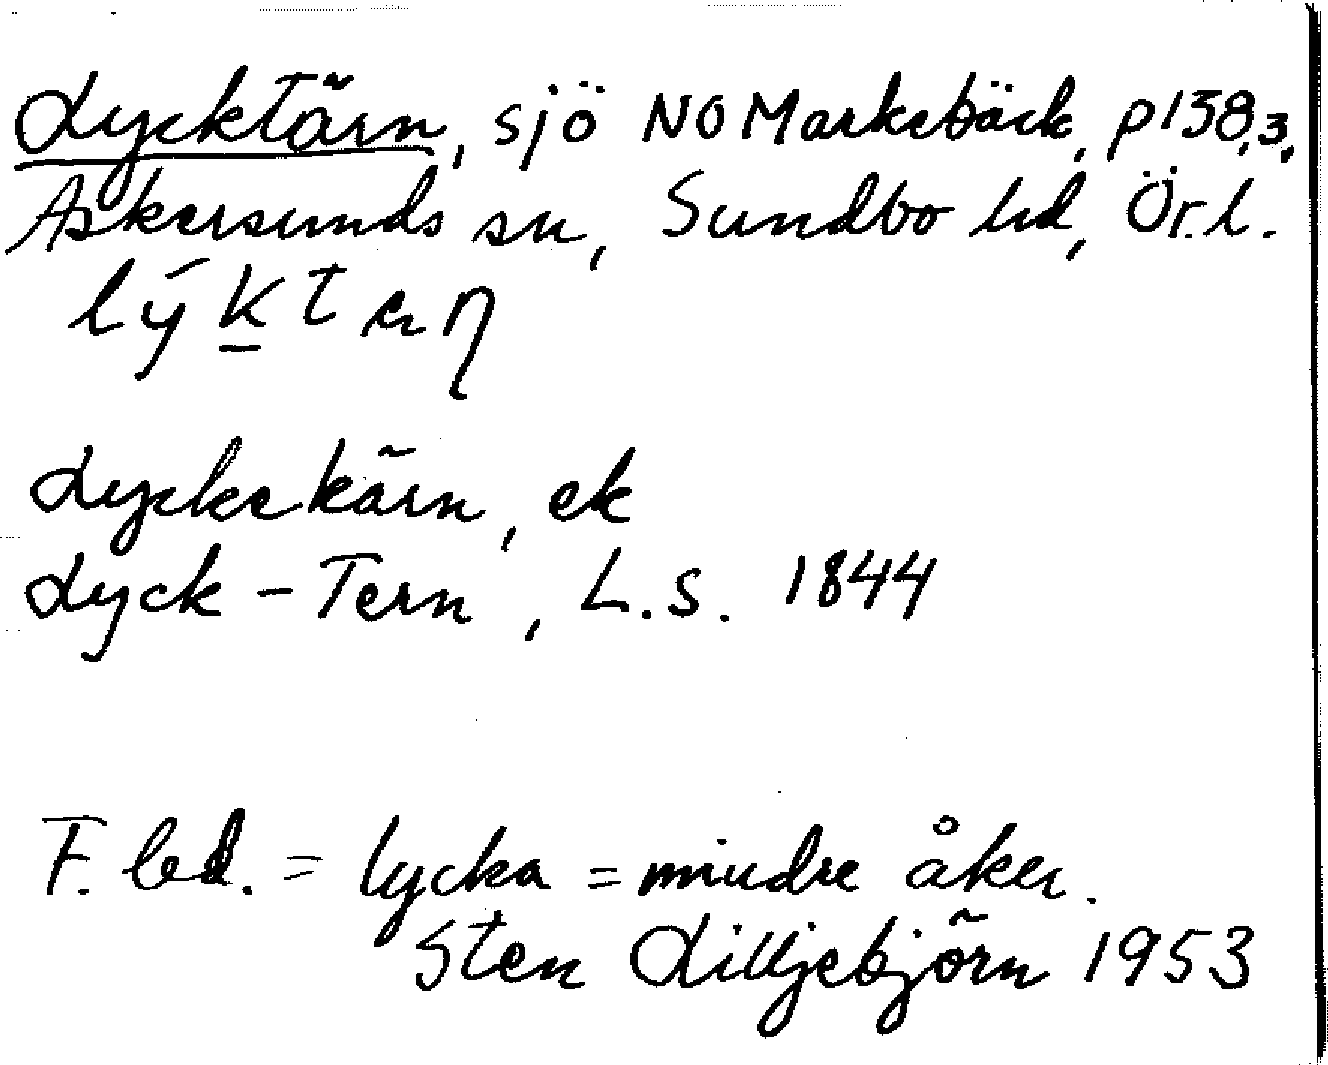 Lycktärn, sjö NO Markebäck, p 138,3,
Askersunds sn, Sundbo hd, Ör. l.
lýktæɳ
Lyckekärn, ek
Lyck-Tern, L.S. 1844
F. led. = lycka = mindre åker.
Sten Lilljebjörn 1953